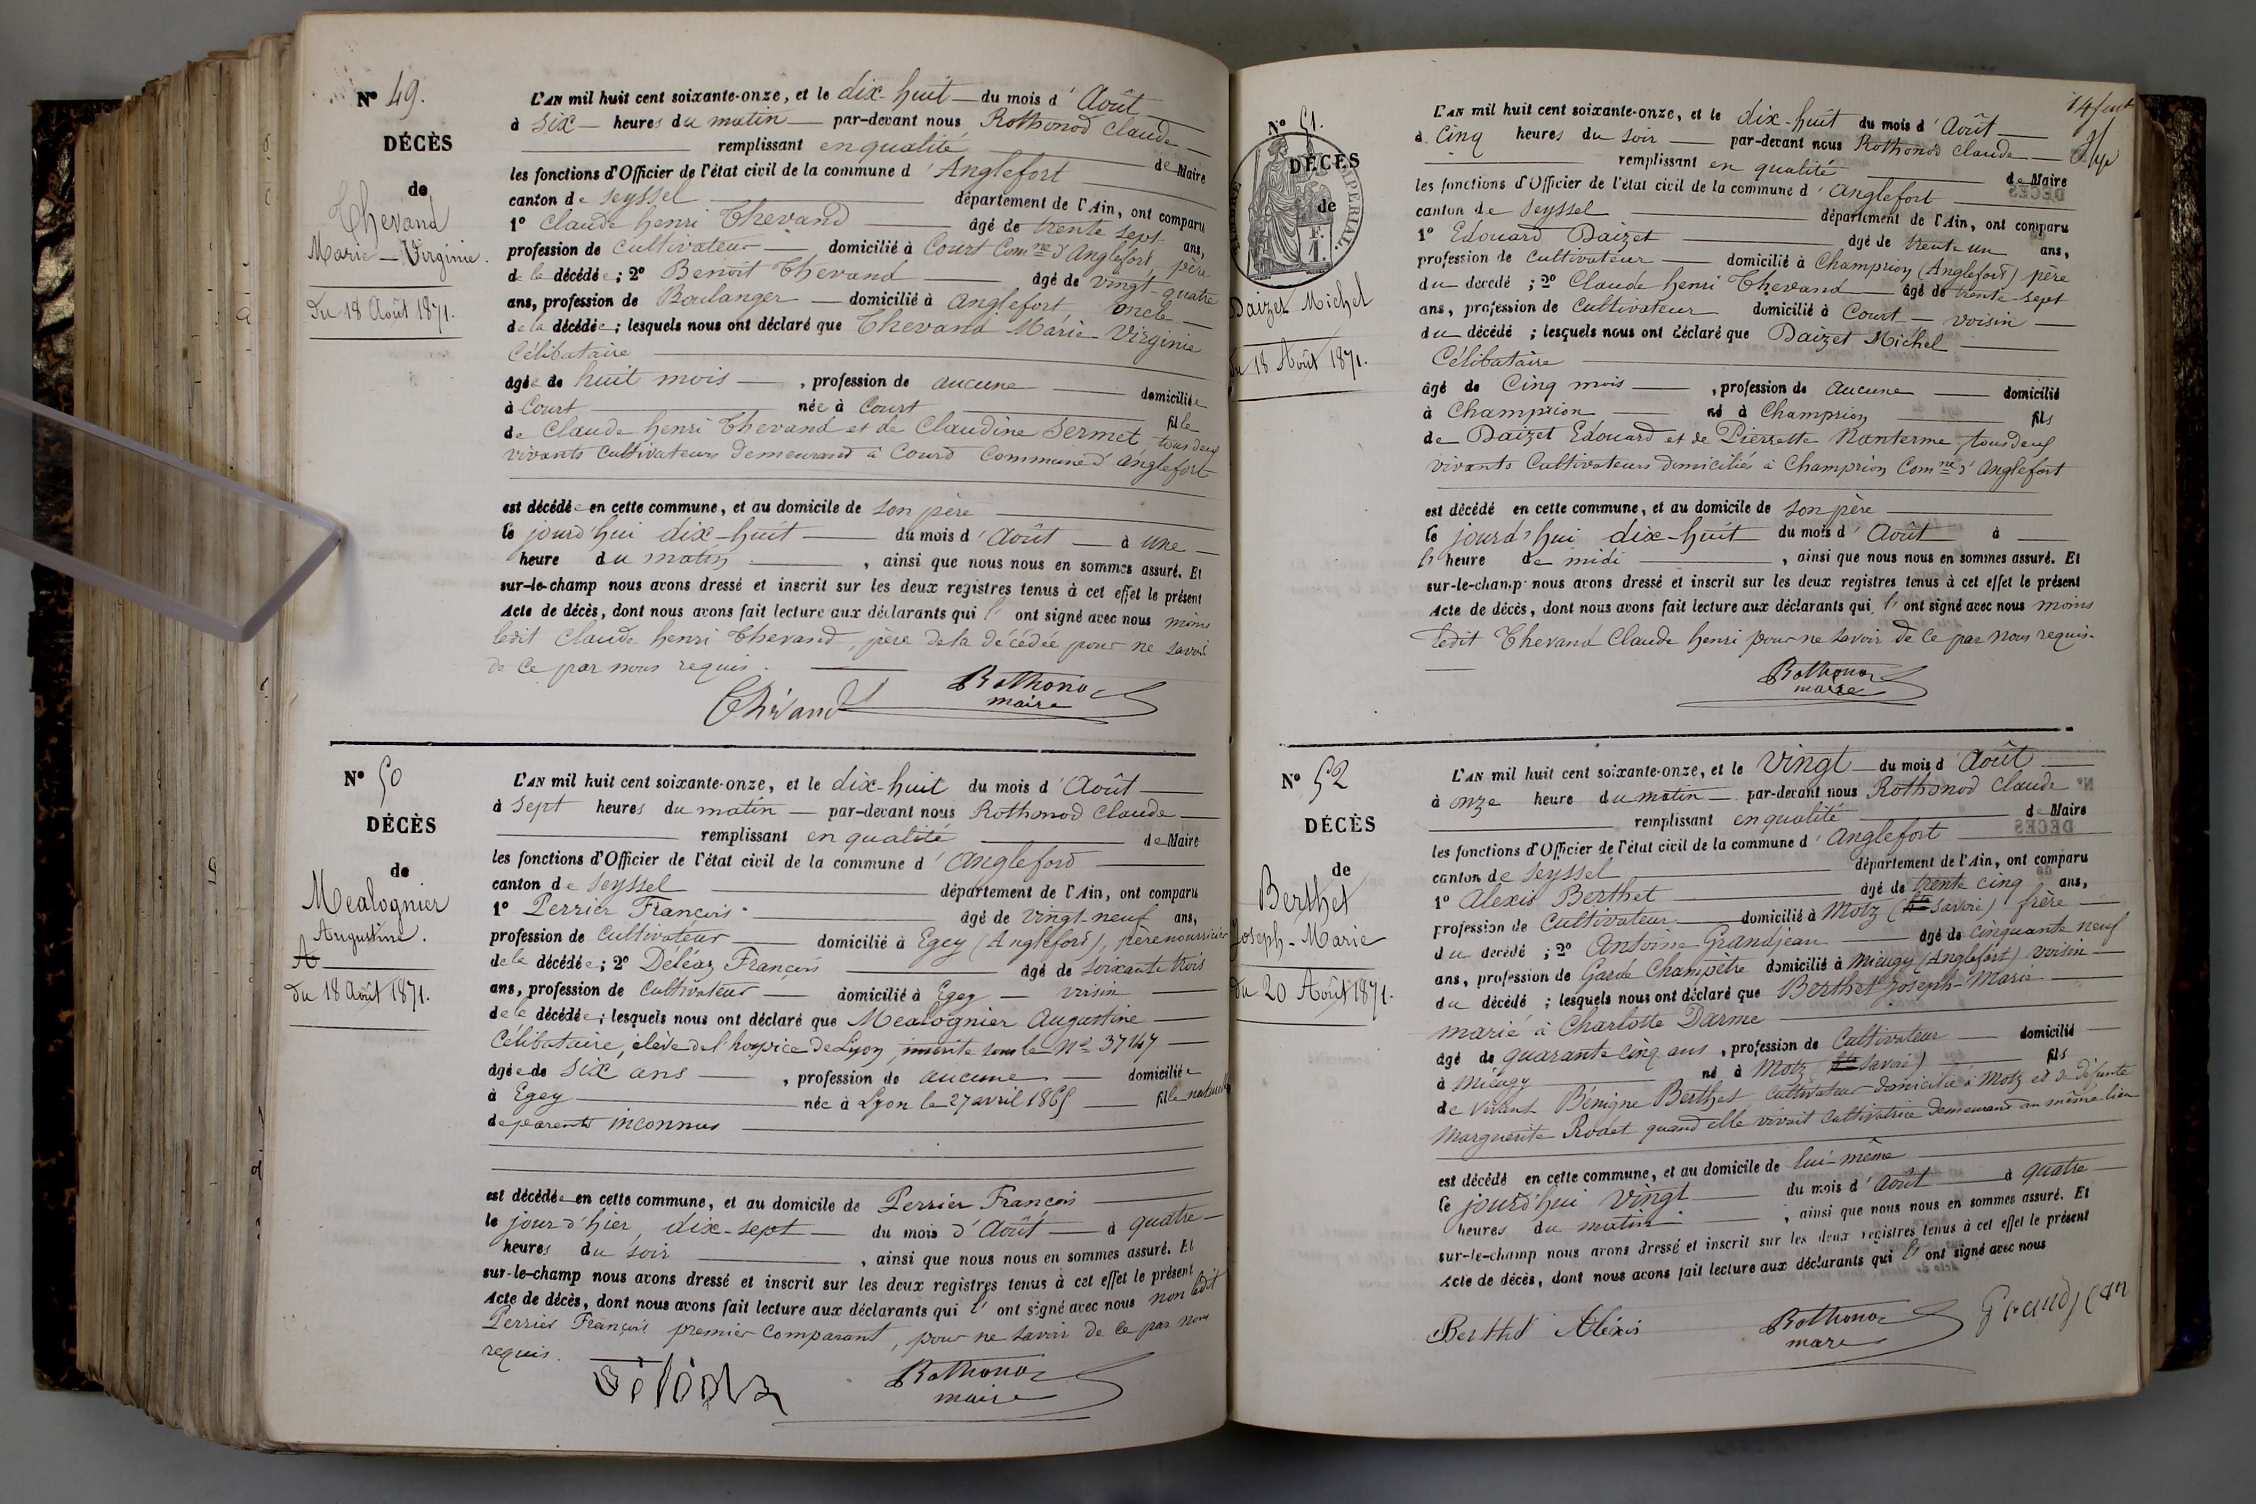 Nº 49.
DÉCÈS
de
Thevand
Marie-Virginie.
Du 18 Août 1871.
L'AN mil huit cent soixante-onze, et le dix-huit du mois d'Août
à six heures du matin par-devant nous Rothonod Claude
remplissant en qualité de Maire
les fonctions d'Officier de l'état civil de la commune d'Anglefort
canton de Seyssel département de l'Ain, ont comparu
1º Claude henri Thevand âgé de trente sept ans,
profession de Cultivateur domicilié à Court Com.ne d'Anglefort, père
de la décédée; 2º Benoit Thevand âgé de vingt-quatre
ans, profession de Boulanger domicilié à Anglefort oncle
de la décédée; lesquels nous ont déclaré que Thevand Marie-Virginie
Célibataire
âgée de huit mois, profession de aucune domiciliée
à Court née à Court fille
de Claude henri Thevand et de Claudine Sermet tous deux
vivants Cultivateurs demeurand à Courd Commune d'Anglefort
est décédée en cette commune, et au domicile de son père
le jourd'hui dix-huit du mois d'Août à une
heure du matin, ainsi que nous nous en sommes assuré. Et
sur-le-champ nous avons dressé et inscrit sur les deux registres tenus à cet effet le présent
Acte de décès, dont nous avons fait lecture aux déclarants qui l'ont signé avec nous moins
ledit Claude henri Thevand, père de la décédée pour ne savoir
de ce par nous requis.
Thévand Rothonod
maire
Nº 50
DÉCÈS
de
Mealognier
Augustine.
A
du 18 Août 1871.
L'AN mil huit cent soixante-onze, et le dix-huit du mois d'Août
à sept heures du matin par-devant nous Rothonod Claude
remplissant en qualité de Maire
les fonctions d'Officier de l'état civil de la commune d'Angleford
canton de Seyssel département de l'Ain, ont comparu
1º Perrier François âgé de vingt-neuf ans,
profession de Cultivateur domicilié à Egey (Angleford), père nourricier
de la décédée; 2º Deléaz François âgé de soixante trois
ans, profession de Cultivateur domicilié à Egey voisin
de la décédée; lesquels nous ont déclaré que Mealognier Augustine
Célibataire, élève de l'hospice de Lyon, inscrite sous le Nº 37147
âgée de six ans, profession de aucune domiciliée
à Egey née à Lyon le 27 avril 1865 fille naturelle
de parents inconnus
est décédée en cette commune, et au domicile de Perrier François
le jour d'hier, dix-sept du mois d'Août à quatre
heures du soir, ainsi que nous nous en sommes assuré. Et
sur-le-champ nous avons dressé et inscrit sur les deux registres tenus à cet effet le présent
Acte de décès, dont nous avons fait lecture aux déclarants qui l'ont signé avec nous non ledit
Perrier François premier comparant, pour ne savoir de ce par nous
requis.
Rothonod
maire
Nº 51.
DÉCÈS
de
Daizet Michel
du 18 Août 1871.
L'AN mil huit cent soixante-onze, et le dix-huit du mois d'Août
à Cinq heures du soir par-devant nous Rothonod Claude
remplissant en qualité de Maire
les fonctions d'Officier de l'état civil de la commune d'Anglefort
canton de Seyssel département de l'Ain, ont comparu
1º Edouard Daizet âgé de trente un ans,
profession de Cultivateur domicilié à Champrion (Anglefort) père
du décédé; 2º Claude henri Thevand âgé de trente-sept
ans, profession de Cultivateur domicilié à Court voisin
du décédé; lesquels nous ont déclaré que Daizet Michel
Célibataire
âgé de Cinq mois, profession de aucune domicilié
à Champrion né à Champrion fils
de Daizet Edouard et de Pierrette Nanterme tous deux
vivants Cultivateurs domiciliés à Champrion Com.ne d'Anglefort
est décédé en cette commune, et au domicile de son père
le jourd'hui dix-huit du mois d'Août à
l'heure de midi, ainsi que nous nous en sommes assuré. Et
sur-le-champ nous avons dressé et inscrit sur les deux registres tenus à cet effet le présent
Acte de décès, dont nous avons fait lecture aux déclarants qui l'ont signé avec nous moins
ledit Thevand Claude henri pour ne savoir de ce par nous requis.
Rothonod
maire
Nº 52
DÉCÈS
de
Berthet
Joseph-Marie
du 20 Août 1871.
L'AN mil huit cent soixante-onze, et le vingt du mois d'Août
à onze heure du matin par-devant nous Rothonod Claude
remplissant en qualité de Maire
les fonctions d'Officier de l'état civil de la commune d'Anglefort
canton de Seyssel département de l'Ain, ont comparu
1º Alexis Berthet âgé de trente cinq ans,
profession de Cultivateur domicilié à Motz (Savoie) frère
du décédé; 2º Antoine Grandjean âgé de cinquante neuf
ans, profession de Garde Champêtre domicilié à Mieugy (Anglefort) voisin
du décédé; lesquels nous ont déclaré que Berthet Joseph-Marie
marié à Charlotte Darme
âgé de quarante cinq ans, profession de Cultivateur domicilié
à Mieugy né à Motz (Savoie) fils
de vivant Bénigne Berthet Cultivateur domicilié à Motz et de défunte
Marguerite Rodet quand elle vivait Cultivatrice demeurant au même lieu
est décédé en cette commune, et au domicile de lui-même
le jourd'hui vingt du mois d'Août à quatre
heures du matin, ainsi que nous nous en sommes assuré. Et
sur-le-champ nous avons dressé et inscrit sur les deux registres tenus à cet effet le présent
Acte de décès, dont nous avons fait lecture aux déclarants qui l'ont signé avec nous
Berthet Alexis Rothonod Grandjean
maire